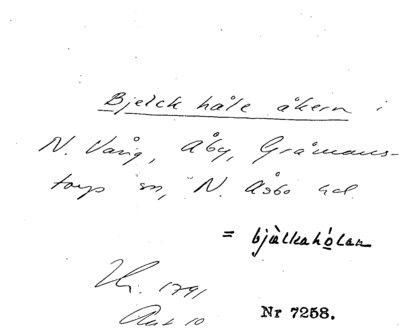 Bjelck håle åkern i
N. Vång, Åby, Gråmans-
torps sn, N. Åsbo hd
= bjälkahólan
1791
Akt 10
Nr 7258.